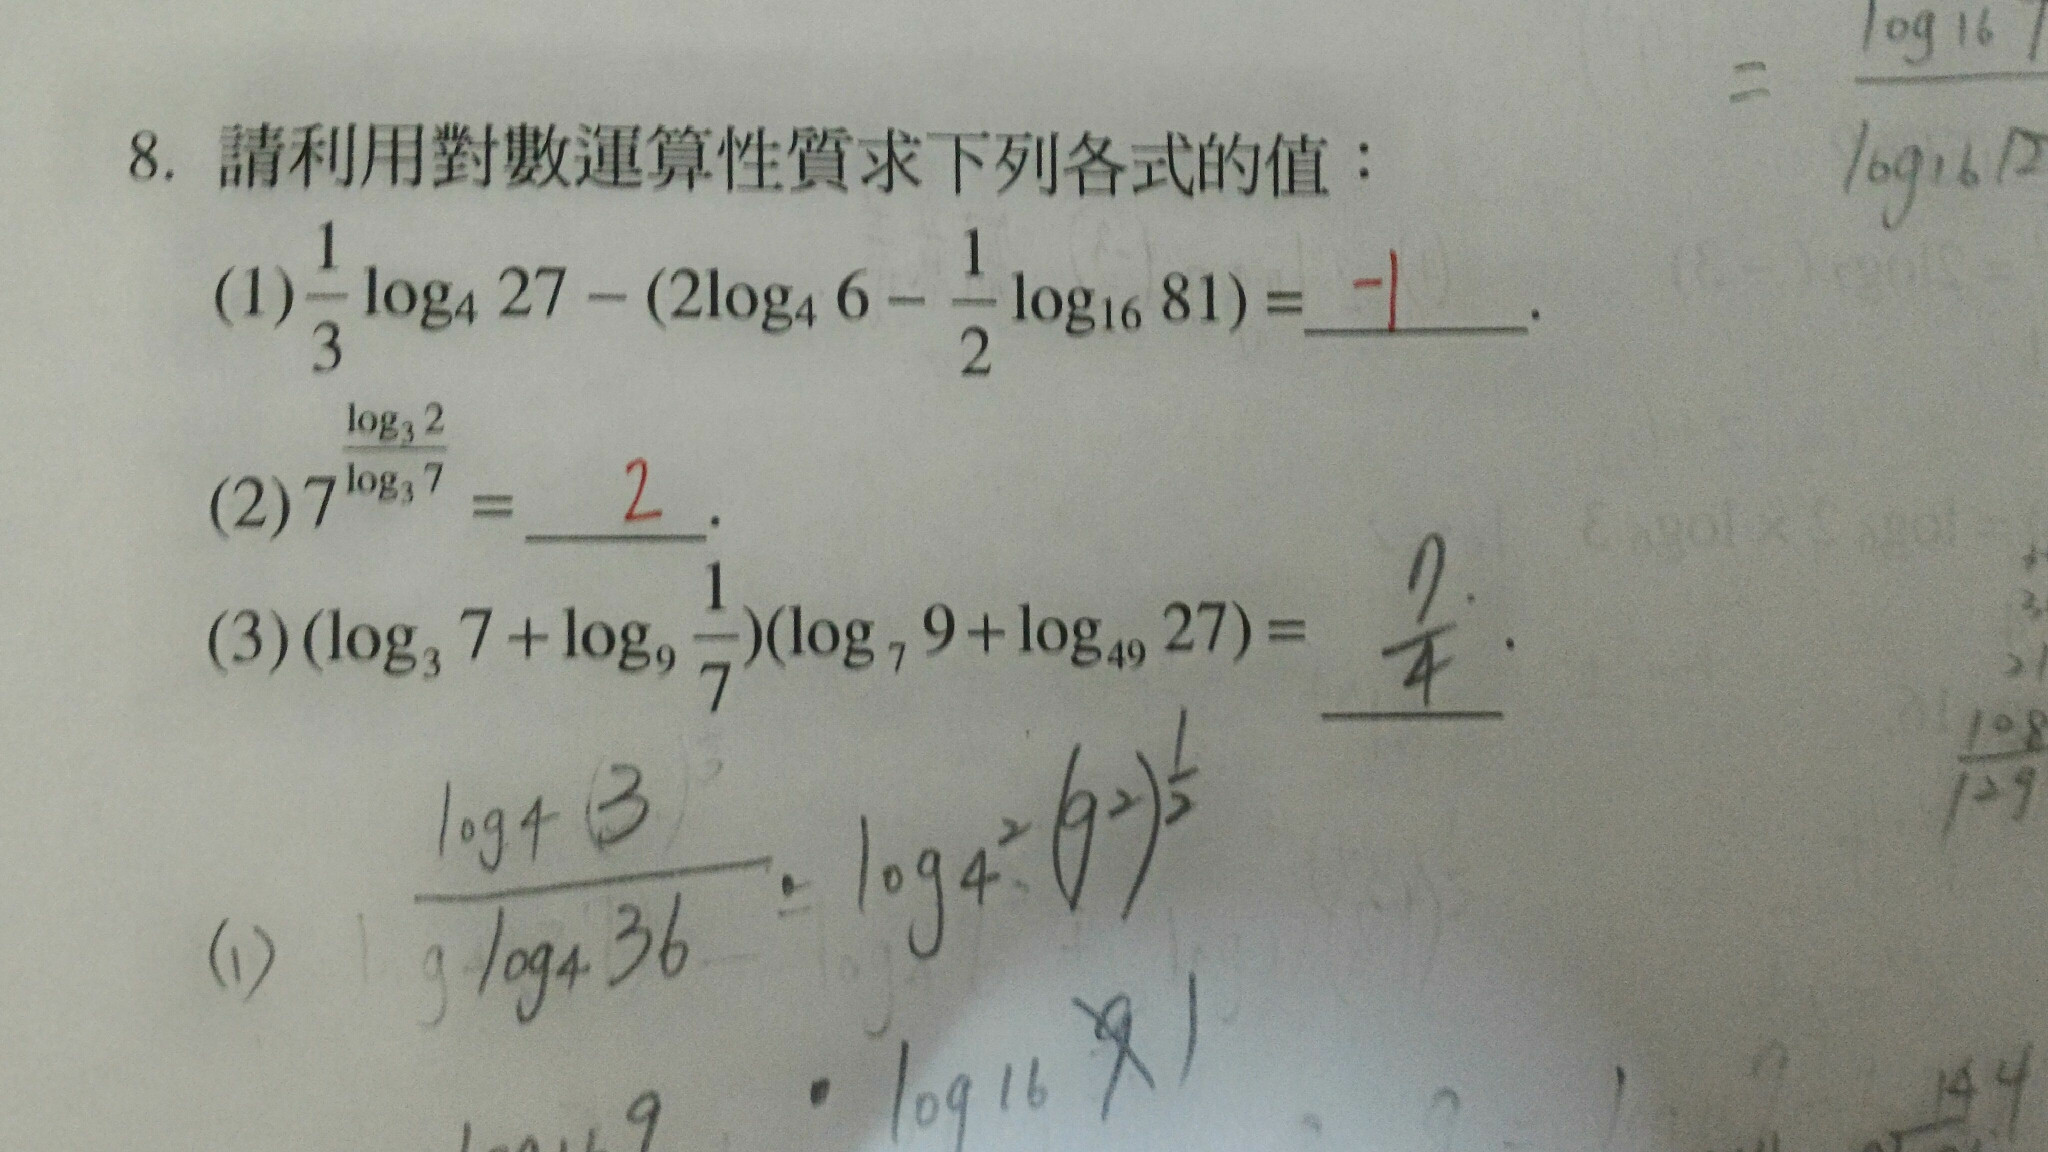 = log16 7 / log16 12
8. 請利用對數運算性質求下列各式的值：
(1) 1/3 log₄ 27 − (2log₄ 6 − 1/2 log₁₆ 81) = -1 .
(2) 7^(log₃ 2 / log₃ 7) = 2 .
(3) (log₃ 7 + log₉ 1/7)(log₇ 9 + log₄₉ 27) = 7/4 .
(1) log4 (3 / log4 36 · log4² (9²)^(1/2)
108
129
9 · log16 1
144